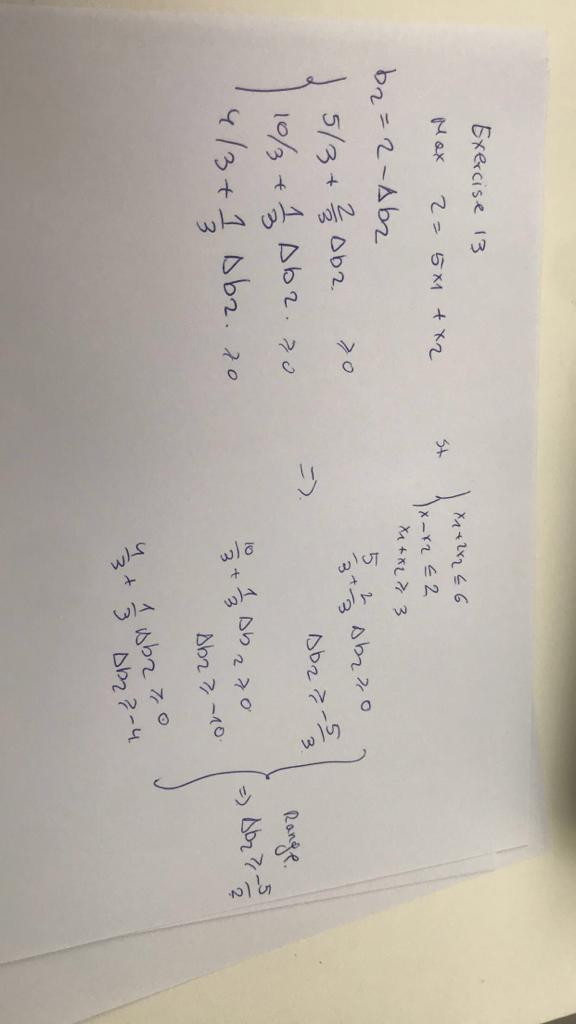 Exercise 13
Max z = 5x1 + x2 st { x1+2x2 ≤ 6
x-x2 ≤ 2
x1+x2 ≥ 3
b2 = 2 - Δb2
5/3 + 2/3 Δb2 ≥ 0
10/3 + 1/3 Δb2. ≥ 0
4/3 + 1/3 Δb2. ≥ 0
=>.
5/3 + 2/3 Δb2 ≥ 0
Δb2 ≥ -5/3
10/3 + 1/3 Δb2 ≥ 0
Δb2 ≥ -10.
4/3 + 1/3 Δb2 ≥ 0
Δb2 ≥ -4
Range.
=> Δb2 ≥ -5/2